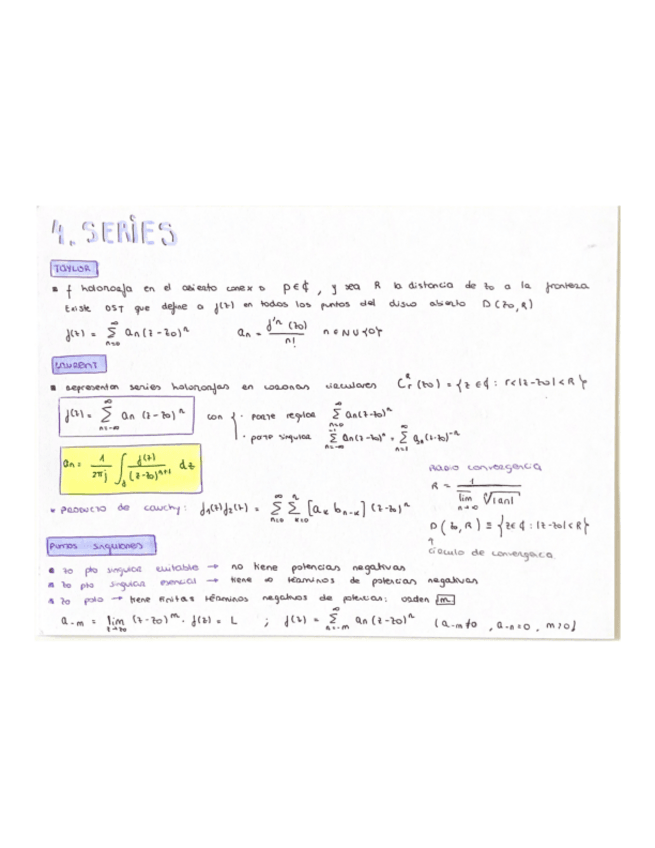 4. SERIES
TAYLOR
f holomorfa en el abierto conexo p∈ℂ, y sea R la distancia de z0 a la frontera
Existe DST que define a f(z) en todos los puntos del disco abierto D(z0,R)
f(z) = ∑_{n=0}^{∞} an(z-z0)^n an = f'^n(z0)/n! n∈N∪{0}
LAURENT
representan series holomorfas en coronas circulares C_r^R(z0) = {z∈ℂ : r<|z-z0|<R}
f(z) = ∑_{n=-∞}^{∞} an (z-z0)^n con { · parte regular ∑_{n=0}^{∞} an(z-z0)^n
· parte singular ∑_{n=-∞}^{-1} an(z-z0)^n = ∑_{n=1}^{∞} a_n(z-z0)^{-n}
an = 1/2πj ∫_γ f(z)/(z-z0)^{n+1} dz
RADIO CONVERGENCIA
R = 1/lim_{n→∞} ⁿ√|an|
PRODUCTO de cauchy: f1(z)f2(z) = ∑_{n=0}^{∞} ∑_{k=0}^{n} [a_k b_{n-k}] (z-z0)^n
D(z0,R) ≡ {z∈ℂ : |z-z0|<R}
círculo de convergencia
PUNTOS SINGULARES
z0 pto singular evitable → no tiene potencias negativas
z0 pto singular esencial → tiene ∞ términos de potencias negativas
z0 polo → tiene finitas términos negativos de potencias: orden m
a-m = lim_{z→z0} (z-z0)^m · f(z) = L ; f(z) = ∑_{n=-m}^{∞} an(z-z0)^n (a-m≠0, a-n=0, m>0)